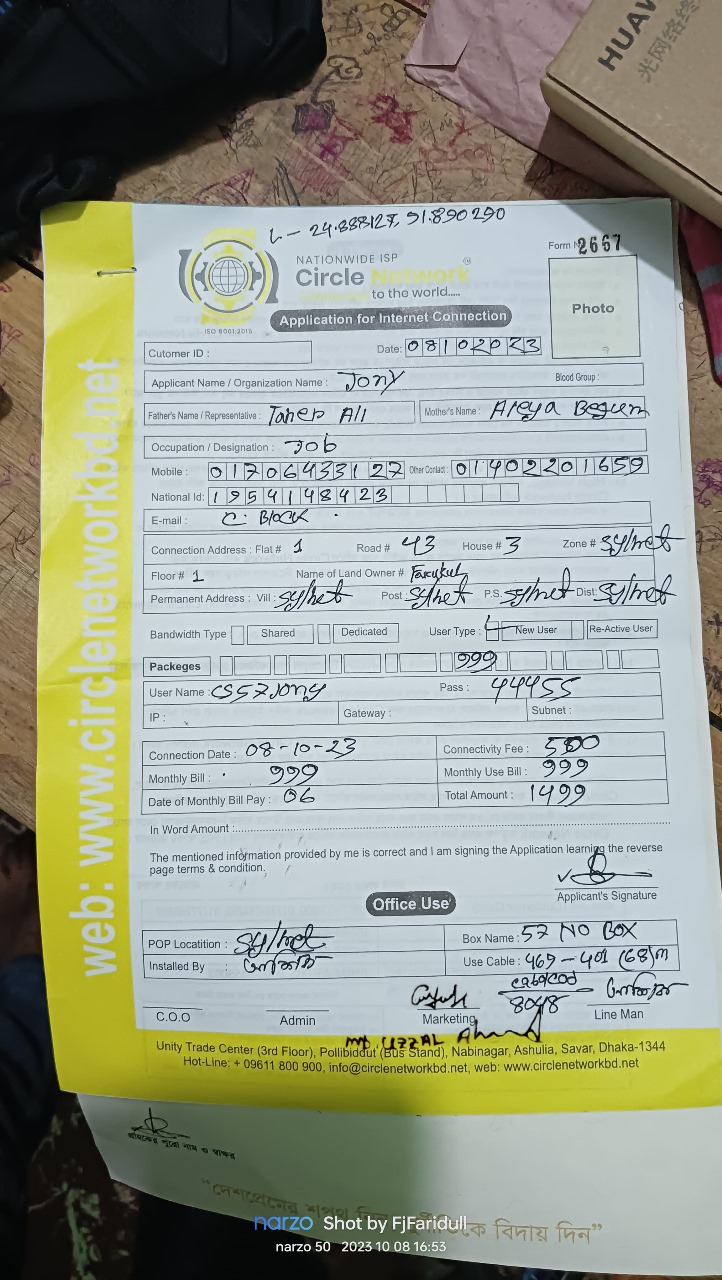 HUAW
光网络终
L - 24.888127, 91.890290
NATIONWIDE ISP
Form N 2667
Circle Network
to the world.....
ISO 9001:2015
Application for Internet Connection
Photo
Cutomer ID :
Date: 08102023
Applicant Name / Organization Name : Jony Blood Group :
Father's Name / Representative : Taher Ali Mother's Name : Begum
Occupation / Designation : Job
Mobile : 01706433127 Other Contact : 01402201659
National Id: 1954148423
E-mail : C: Block
Connection Address : Flat # 1 Road # 43 House # 3 Zone # Sylhet
Floor # 1 Name of Land Owner #
Permanent Address : Vill : Sylhet Post Sylhet P.S. Sylhet Dist: Sylhet
Bandwidth Type Shared Dedicated User Type : New User Re-Active User
Packeges 999
User Name : CS57Jony Pass : 44455
IP : Gateway : Subnet :
Connection Date : 08-10-23 Connectivity Fee : 500
Monthly Bill : 999 Monthly Use Bill : 999
Date of Monthly Bill Pay : 06 Total Amount : 1499
In Word Amount :
The mentioned information provided by me is correct and I am signing the Application learning the reverse
page terms & condition.
Applicant's Signature
Office Use
POP Locatition : Sylhet Box Name : 57 NO BOX
Installed By : Use Cable : 469-401 (68)m
8048
C.O.O Admin Marketing Line Man
MD UZZAL Ahmed
Unity Trade Center (3rd Floor), Pollibiddut (Bus Stand), Nabinagar, Ashulia, Savar, Dhaka-1344
Hot-Line: + 09611 800 900, info@circlenetworkbd.net, web: www.circlenetworkbd.net
web: www.circlenetworkbd.net
গ্রাহকের পুরো নাম ও স্বাক্ষর
“দেশপ্রেমের শপথ নিন দুর্নীতিকে বিদায় দিন”
narzo Shot by FjFaridull
narzo 50 2023 10 08 16:53